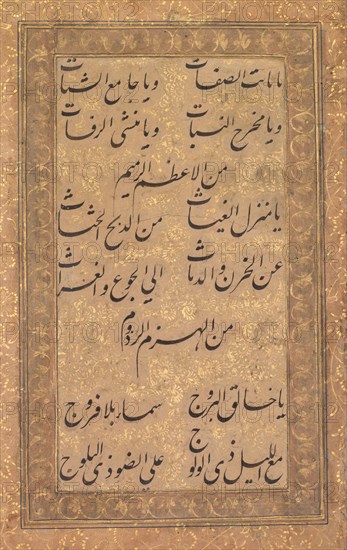 يا ثابت الصفات ويا جامع الشتات
ويا مخرج النبات ويا منشئ الرفات
من الاعظم الرميم
يا منزل الغياث من الدلح الحثاث
عن الحزن والدماث الي الجوع والغراث
من الهزم الرزوم
يا خالق البروج سما بلا فروج
مع الليل ذي الولوج علي الضوذي البلوج